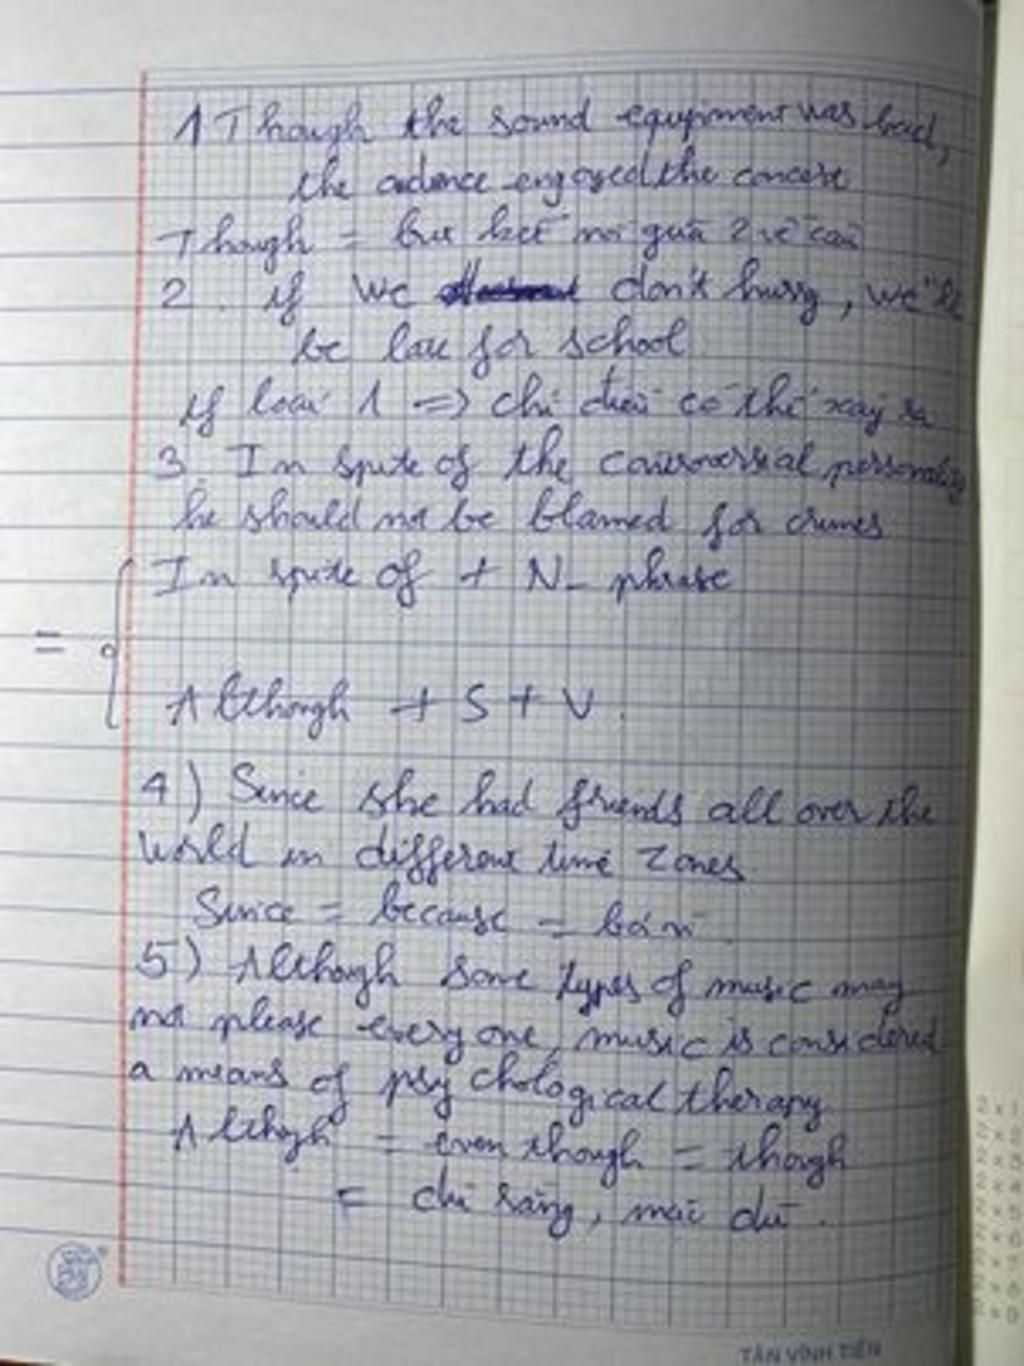 1 Though the sound equipment was bad,
the audience enjoyed the concert
Though = but kết nối giữa 2 vế câu
2. if we don't hurry, we'll
be late for school
if loại 1 => chỉ điều có thể xảy ra
3. In spite of the controversial personality
he should not be blamed for crimes
In spite of + N- phrase
=
Although + S + V.
4) Since she had friends all over the
world in different time zones
Since = because = bởi vì.
5) Although some types of music may
not please every one, music is considered
a means of psychological therapy
Although = even though = though
= dù rằng, mặc dù.
TÂN VĨNH TIẾN